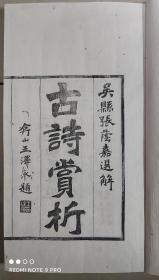 吳縣張蔭嘉選解
古詩賞析
衡山王澤
題
REDMI NOTE 9 PRO